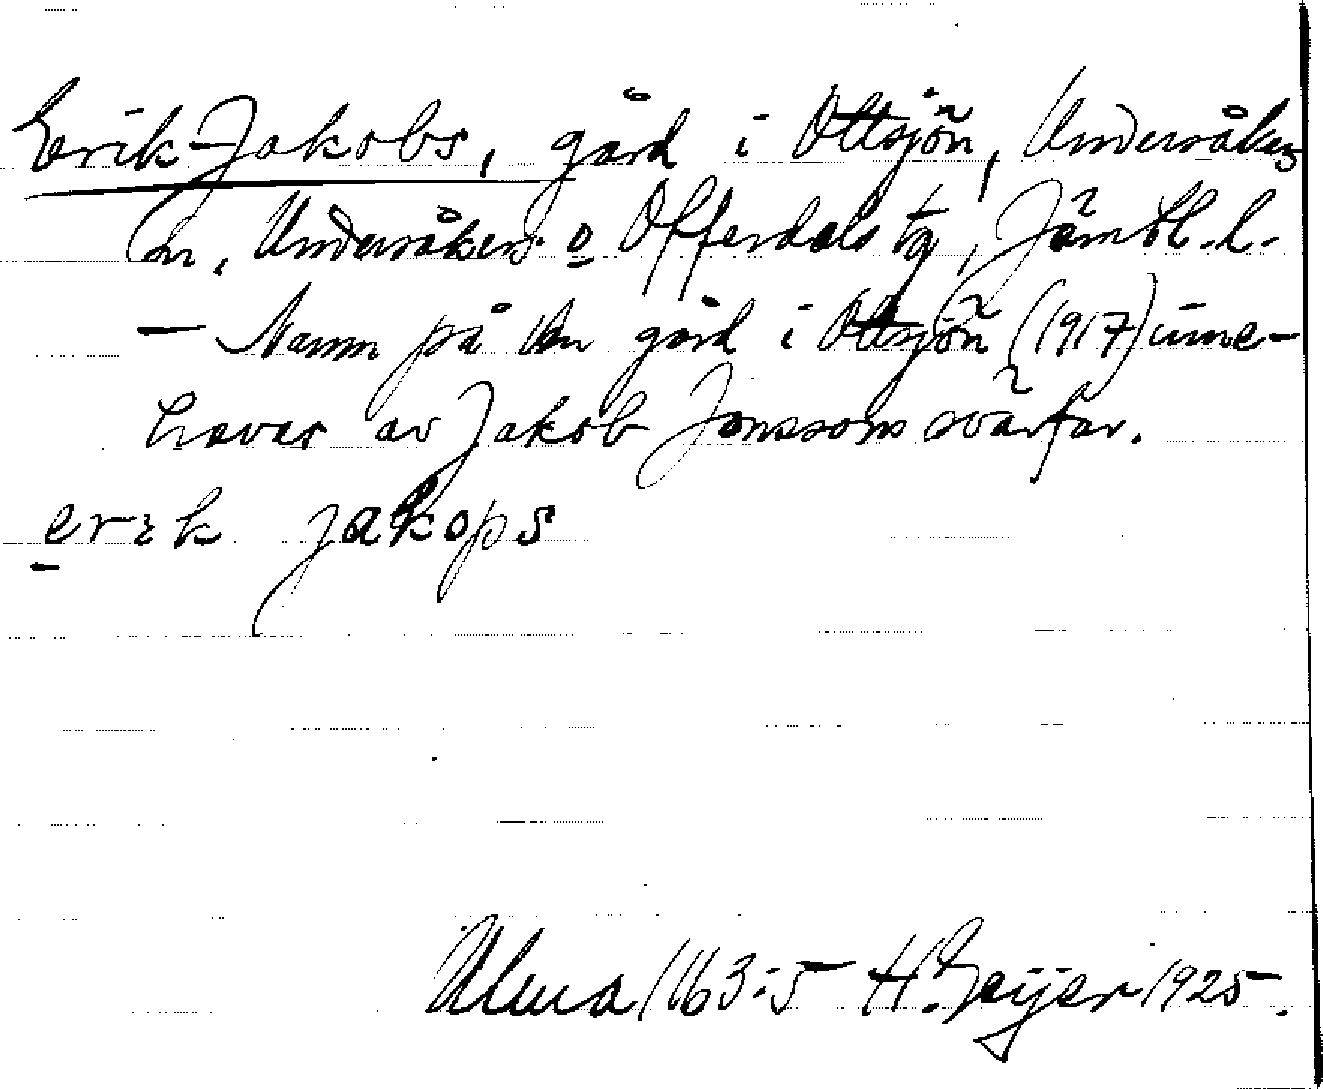 Erik-Jakobs, gård i Ottsjön, Undersåkers
sn, Undersåkers o Offerdals tg, Jämtl. l.
– Namn på den gård i Ottsjön (1917) inne-
havas av Jakob Jonssons svärfar.
erik jakops
Ulma 163:5 H. Geijer 1925.